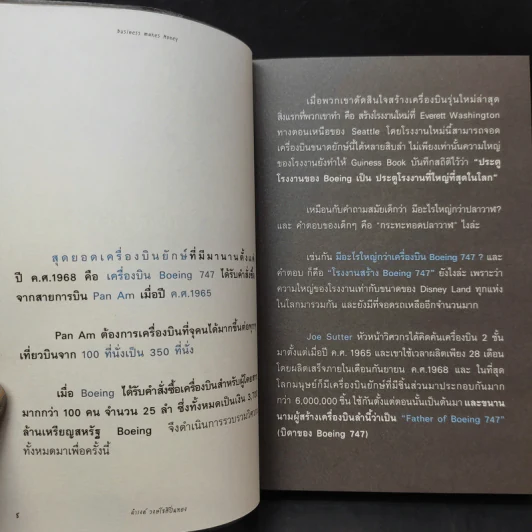 business makes money
สุดยอดเครื่องบินยักษ์ที่มีมานานตั้งแต่
ปี ค.ศ.1968 คือ เครื่องบิน Boeing 747 ได้รับคำสั่ง
จากสายการบิน Pan Am เมื่อปี ค.ศ.1965
Pan Am ต้องการเครื่องบินที่จุคนได้มากขึ้นต่อ
เที่ยวบินจาก 100 ที่นั่งเป็น 350 ที่นั่ง
เมื่อ Boeing ได้รับคำสั่งซื้อเครื่องบินสำหรับผู้โดยสาร
มากกว่า 100 คน จำนวน 25 ลำ ซึ่งทั้งหมดเป็นเงิน
ล้านเหรียญสหรัฐ Boeing จึงดำเนินการรวบรวม
ทั้งหมดมาเพื่อครั้งนี้
เมื่อพวกเขาตัดสินใจสร้างเครื่องบินรุ่นใหม่ล่าสุด
สิ่งแรกที่พวกเขาทำ คือ สร้างโรงงานใหม่ที่ Everett Washington
ทางตอนเหนือของ Seattle โดยโรงงานใหม่นี้สามารถจอด
เครื่องบินขนาดยักษ์นี้ได้หลายสิบลำ ไม่เพียงเท่านั้นความใหญ่
ของโรงงานยังทำให้ Guiness Book บันทึกสถิติไว้ว่า "ประตู
โรงงานของ Boeing เป็น ประตูโรงงานที่ใหญ่ที่สุดในโลก"
เหมือนกับคำถามสมัยเด็กว่า มีอะไรใหญ่กว่าปลาวาฬ?
และ คำตอบของเด็กๆ คือ "กระทะทอดปลาวาฬ" ไงล่ะ
เช่นกัน มีอะไรใหญ่กว่าเครื่องบิน Boeing 747 ? และ
คำตอบ ก็คือ "โรงงานสร้าง Boeing 747" ยังไงล่ะ เพราะว่า
ความใหญ่ของโรงงานเท่ากับขนาดของ Disney Land ทุกแห่ง
ในโลกมารวมกัน และยังมีที่จอดรถเหลืออีกจำนวนมาก
Joe Sutter หัวหน้าวิศวกรได้คิดค้นเครื่องบิน 2 ชั้น
มาตั้งแต่เมื่อปี ค.ศ. 1965 และเขาใช้เวลาผลิตเพียง 28 เดือน
โดยผลิตเสร็จภายในเดือนกันยายน ค.ศ. 1968 และ ในที่สุด
โลกมนุษย์ก็มีเครื่องบินยักษ์ที่มีชิ้นส่วนมาประกอบกันมาก
กว่า 6,000,000 ชิ้น ใช้กันตั้งแต่ตอนนั้นเป็นต้นมา และขนาน
นามผู้สร้างเครื่องบินลำนี้ว่าเป็น "Father of Boeing 747"
(บิดาของ Boeing 747)